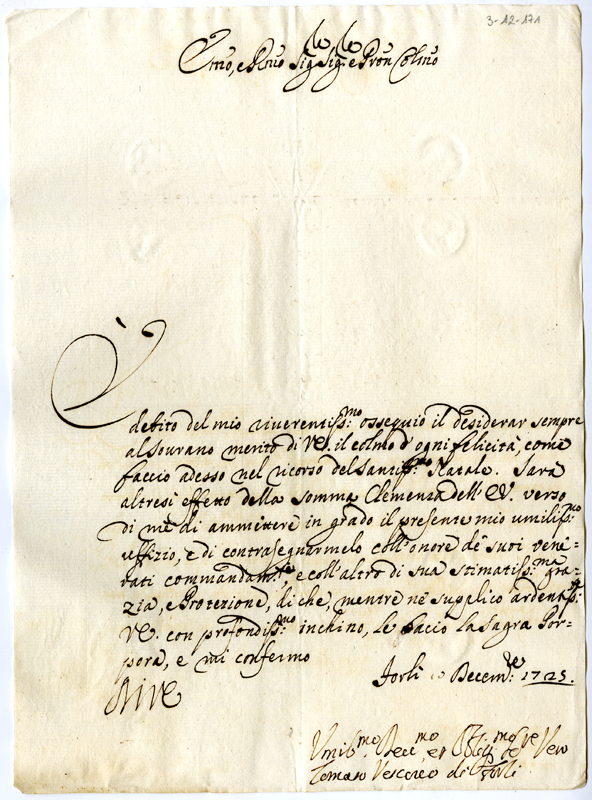 3-12-171
Em̃o, e Rm̃o Sig.re Sig.re e Pron Colmo
È
debito del mio riverentiss:mo ossequio il desiderar sempre
al sourano merito di VE. il colmo d'ogni felicità, come
faccio adesso nel ricorso del Santiss:mo Natale. Sarà
altresi effetto della somma Clemenza dell' EV. verso
di me di ammettere in grado il presente mio umiliss:mo
uffizio, e di contrasegnarmelo coll'onore de' suoi vene=
rati commandam:ti, e coll'altro di sua stimatiss:ma gra=
zia, e Protezione, di che, mentre ne supplico ardentiss:te
VE. con profondiss:mo inchino, le bacio la Sagra Por=
pora, e mi confermo
Forlì Decem:re 1725.
Umil:mo Dev:mo, et Obblig:mo Ser:re Vero
Tomaso Vescovo di Forlì